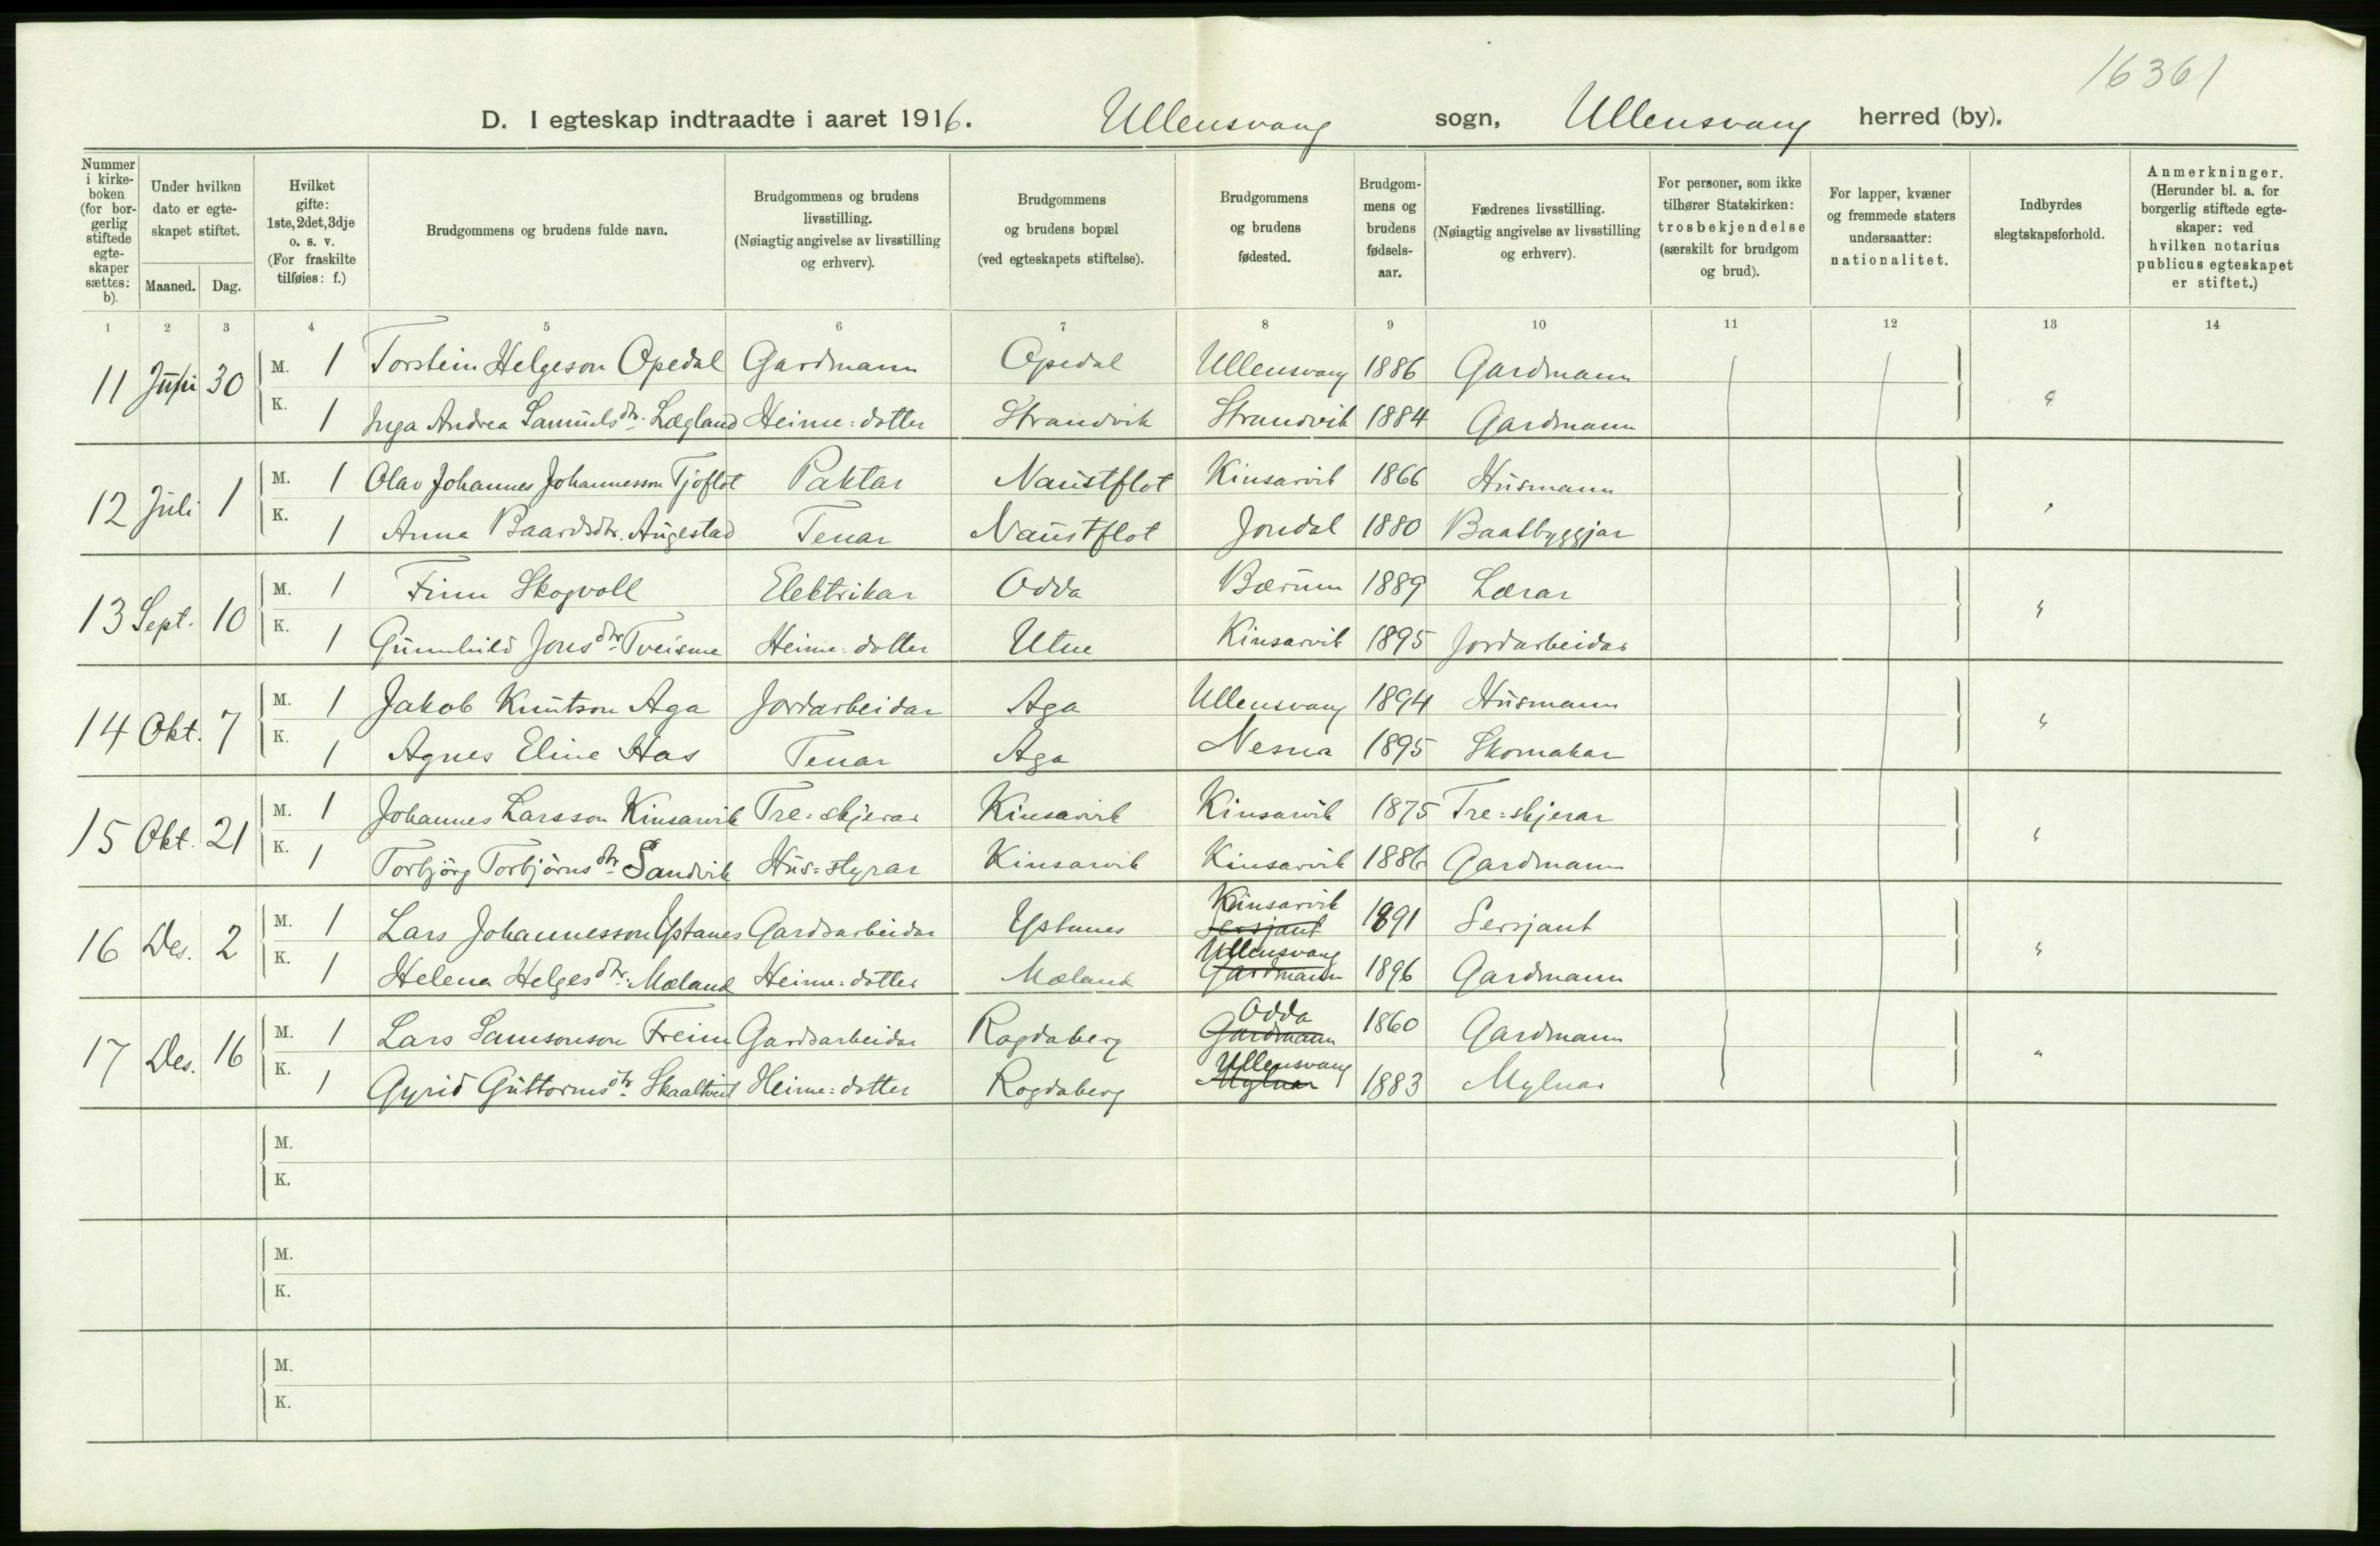 16361
D. I egteskap indtraadte i aaret 1916. Ullensvang sogn, Ullensvang herred (by).
Nummer i kirke-boken (for bor-gerlig stiftede egte-skaper sættes: b). Under hvilken dato er egte-skapet stiftet. Maaned. Dag. Hvilket gifte: 1ste, 2det, 3dje o. s. v. (For fraskilte tilføies: f.) Brudgommens og brudens fulde navn. Brudgommens og brudens livsstilling. (Nøiagtig angivelse av livsstilling og erhverv). Brudgommens og brudens bopæl (ved egteskapets stiftelse). Brudgommens og brudens fødested. Brudgom-mens og brudens fødsels-aar. Fædrenes livsstilling. (Nøiagtig angivelse av livsstilling og erhverv). For personer, som ikke tilhører Statskirken: trosbekjendelse (særskilt for brudgom og brud). For lapper, kvæner og fremmede staters undersaatter: nationalitet. Indbyrdes slegtskapsforhold. Anmerkninger. (Herunder bl. a. for borgerlig stiftede egte-skaper: ved hvilken notarius publicus egteskapet er stiftet.)
1 2 3 4 5 6 7 8 9 10 11 12 13 14
11 30 M. 1 Torstein Helgeson Opedal Gardmann Opedal Ullensvang 1886 Gardmann
K. 1 Inga Andrea Samuelsdtr. Lægland Heime: dotter Strandvik Strandvik 1884 Gardmann
12 Juli 1 M. 1 Olav Johannes Johannesson Tjoflot Paktar Naustflot Kinsarvik 1866 Husmann
K. 1 Anna Baardsdtr. Augestad Tenar Naustflot Jondal 1880 Baatbyggjar
13 Sept. 10 M. 1 Finn Skogvoll Elektrikar Odda Bærum 1889 Lærar
K. 1 Gunnhild Jonsdtr. Tveisme Heime: dotter Utne Kinsarvik 1895 Jordarbeidar
14 Okt. 7 M. 1 Jakob Knutson Aga Jordarbeidar Aga Ullensvang 1894 Husmann
K. 1 Agnes Eline Has Tenar Aga Nesna 1895 Skomakar
15 Okt. 21 M. 1 Johannes Larsson Kinsarvik Tre=skjerar Kinsarvik Kinsarvik 1875 Tre=skjerar
K. 1 Torbjörg Torbjörnsdtr. Sandvik Hus=styrar Kinsarvik Kinsarvik 1886 Gardmann
16 Des. 2 M. 1 Lars Johannesson Ystanes Gardsarbeidar Ystanes Kinsarvik Sersjant 1891 Sersjant
K. 1 Helena Helgesdtr. Mæland Heime: dotter Mæland Ullensvang Gardmann 1896 Gardmann
17 Des. 16 M. 1 Lars Samsonson Freim Gardsarbeidar Rogdaberg Odda Gardmann 1860 Gardmann
K. 1 Gyrid Guttormsdtr. Skaaltveit Heime: dotter Rogdaberg Ullensvang Mylnar 1883 Mylnar
M.
K.
M.
K.
M.
K.